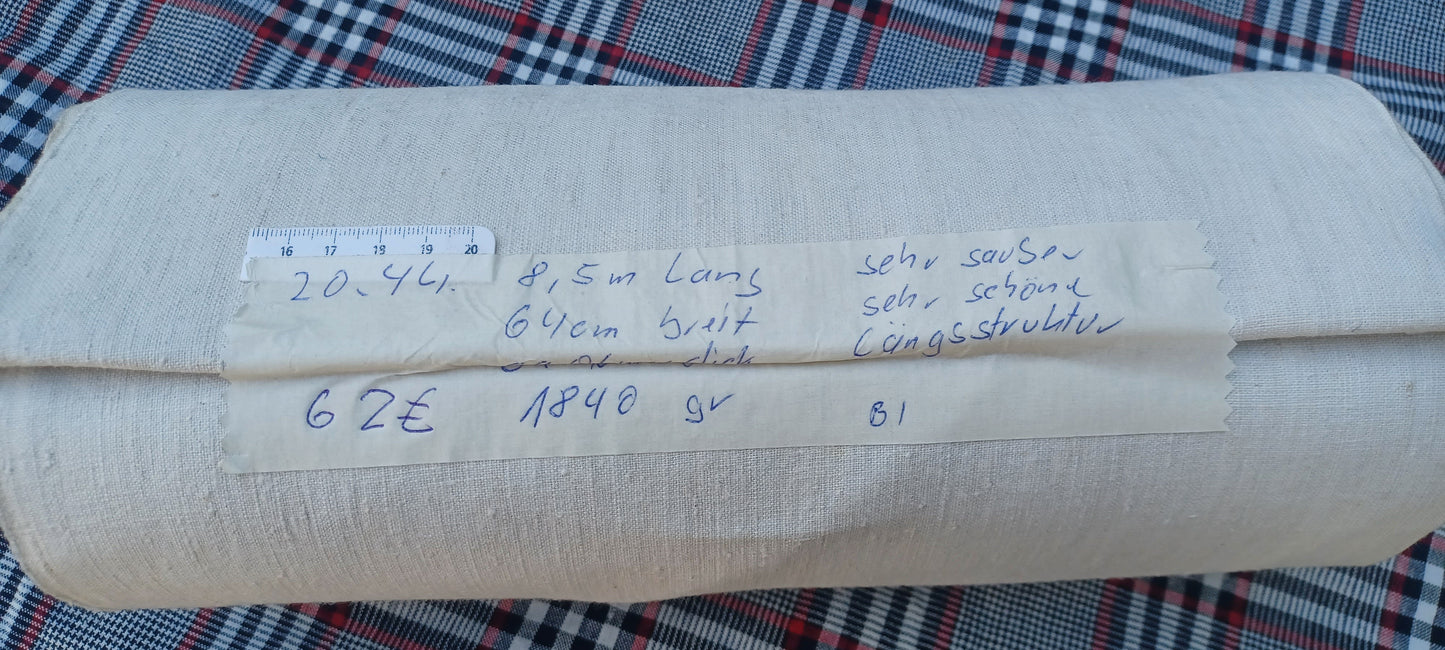 16 17 18 19 20
20.44. 8,5m Lang sehr sauber
64cm breit sehr schöne
Längsstruktur
62€ 1840 gr B1